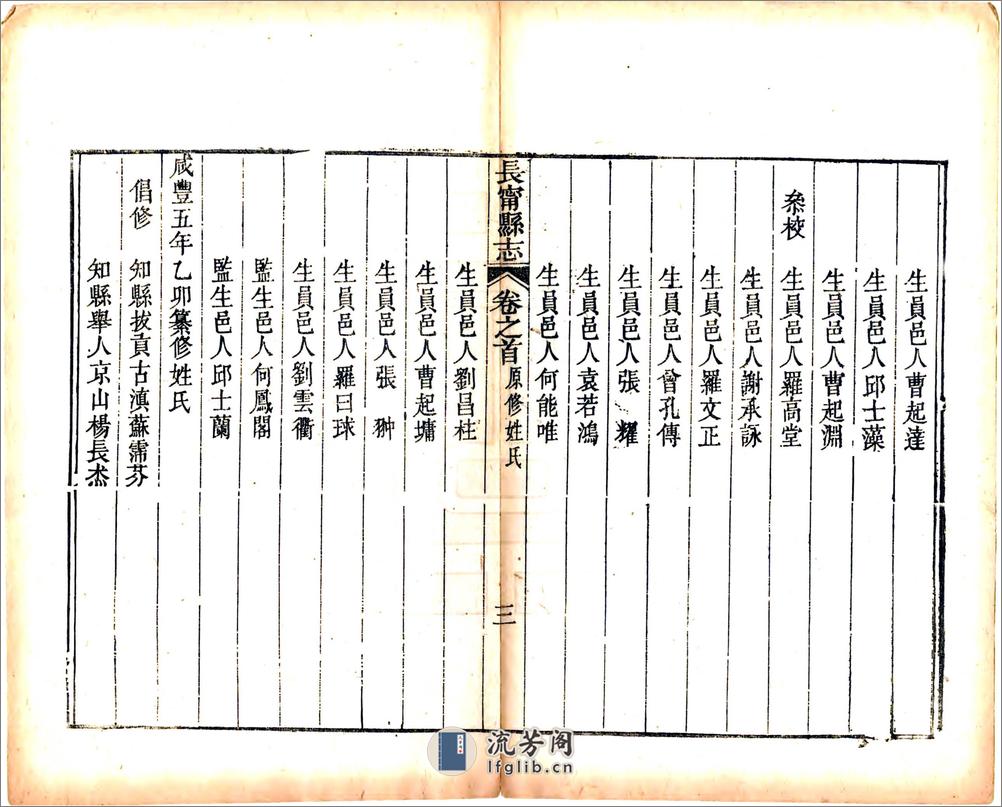 生員邑人曹起達
生員邑人邱士藻
生員邑人曹起淵
叅校 生員邑人羅高堂
生員邑人謝承詠
生員邑人羅文正
生員邑人曾孔傳
生員邑人張 耀
生員邑人袁若鴻
生員邑人何能唯
長甯縣志 卷之首 原修姓氏 三
生員邑人劉昌柱
生員邑人曹起墉
生員邑人張 翀
生員邑人羅曰球
生員邑人劉雲衢
監生邑人何鳳閣
監生邑人邱士蘭
咸豐五年乙卯纂修姓氏
倡修 知縣拔貢古滇蘇霈芬
知縣舉人京山楊長杰
流芳阁
lfglib.cn